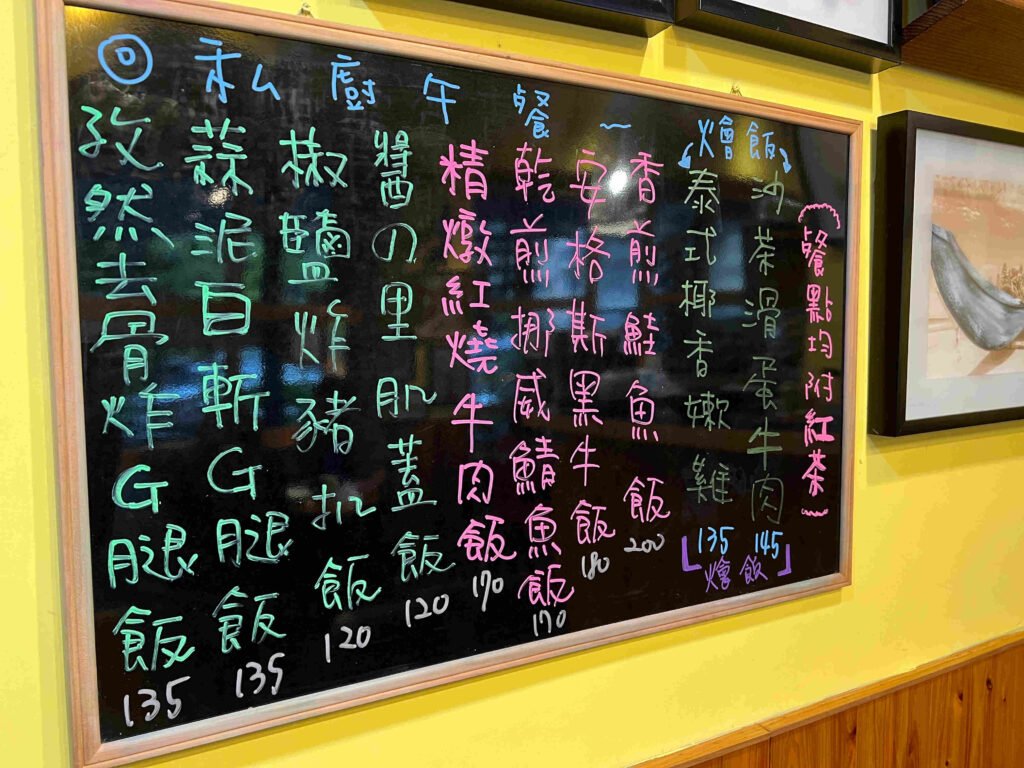 私廚午餐~
燴飯
餐點均附紅茶
沙茶滑蛋牛肉 145
泰式椰香嫩雞 135
燴飯
香煎鮭魚飯 200
安格斯黑牛飯 180
乾煎挪威鯖魚飯 170
精燉紅燒牛肉飯 170
醬の里肌蓋飯 120
椒鹽炸豬扒飯 120
蒜泥白斬G腿飯 135
孜然去骨炸G腿飯 135